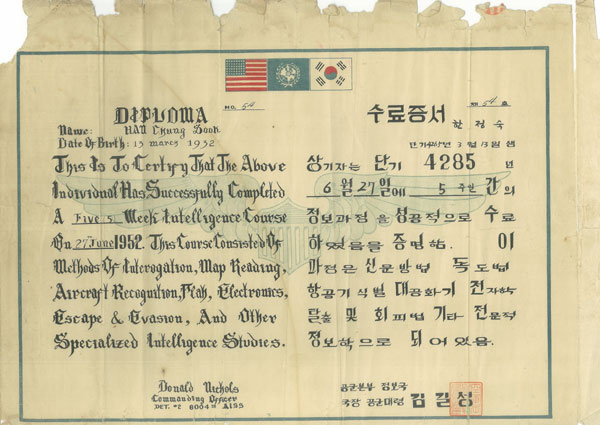 DIPLOMA
NO. 54
Name: HAN Chung Sook
Date Of Birth: 13 march 1932
This Is To Certify That The Above
Individual Has Successfully Completed
A Five 5 Week Intelligence Course
On 27 June 1952. This Course Consisted Of
Methods Of Interogation, Map Reading,
Aircraft Recognition, Flak, Electronics,
Escape & Evasion, And Other
Specialized Intelligence Studies.
Donald Nichols
Commanding Officer
DET. #2 6004th AISS
수료증서
제 54 호
한정숙
3월 13일 생
상기자는 단기 4285 년
6월 27일에 5 주일 간의
정보과정을 성공적으로 수료
하였음을 증명함. 이
과정은 신문방법 독도법
항공기식별 대공화기 전자학
탈출 및 회피법 기타 전문적
정보학으로 되어있음.
공군본부 정보국
국장 공군대령 김길성